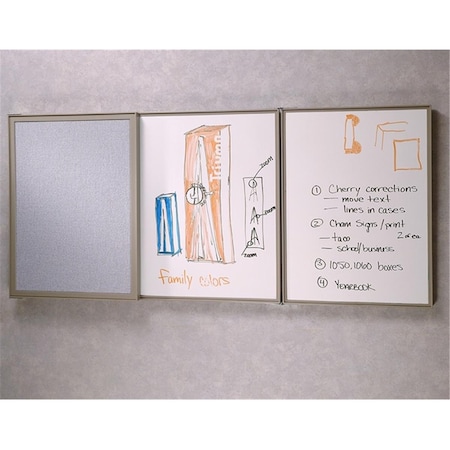 Triumph
zoom
zoom
zoom
Family colors
① Cherry corrections
— move text
— lines in cases
② Cham Signs / print
— taco 2 of ea.
— school/business
③ 1050, 1060 boxes
④ YEARBOOK